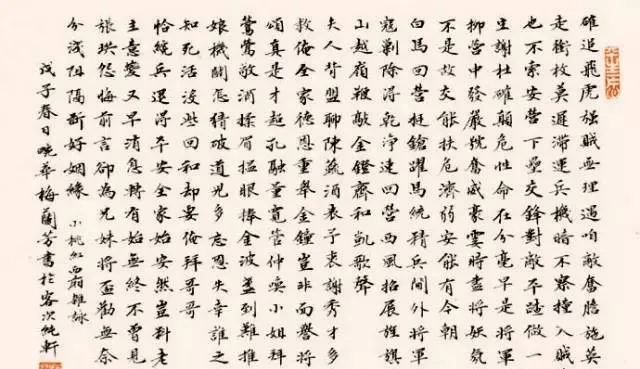 確追飛虎強賊無理遇咱敵奮膽施英
走銜枚莫遲滯運兵機暗不察撞入賊
也不索安營下壘交鋒對敵平踏做一
生謝杜確顛危性命在分毫早是將英
柳營中發嚴號奮威豪霎時盡將妖氛
不是故交能扶危濟弱安能有今朝
白馬回營挺鎗躍馬統精兵閫外將軍
寇剿除得乾淨速回營西風招展旌旗
山越嶺鞭敲金鐙齊和凱歌聲
夫人背盟聊陳蔬酒表予衷謝秀才多
救俺全家德恩重舉金鐘豈非面譽將
頌真是才超孔融量寬管仲喚小姐拜
鶯鶯敬酒揉眉搵眼捧金波盞到難推
娘機關怎猜破道兄多忘恩失幸誰之
知死活沒些回和却要俺拜哥哥
恰繞兵還得平安全家始安然豈料老
主意變又早消息漸有始無終不曾見
張珙怨悔前言卻為兄妹將盃勸無奈
分淺阻隔斷好姻緣 小桃紅西廂雜詠
戊子春日畹華梅蘭芳書於客次純軒